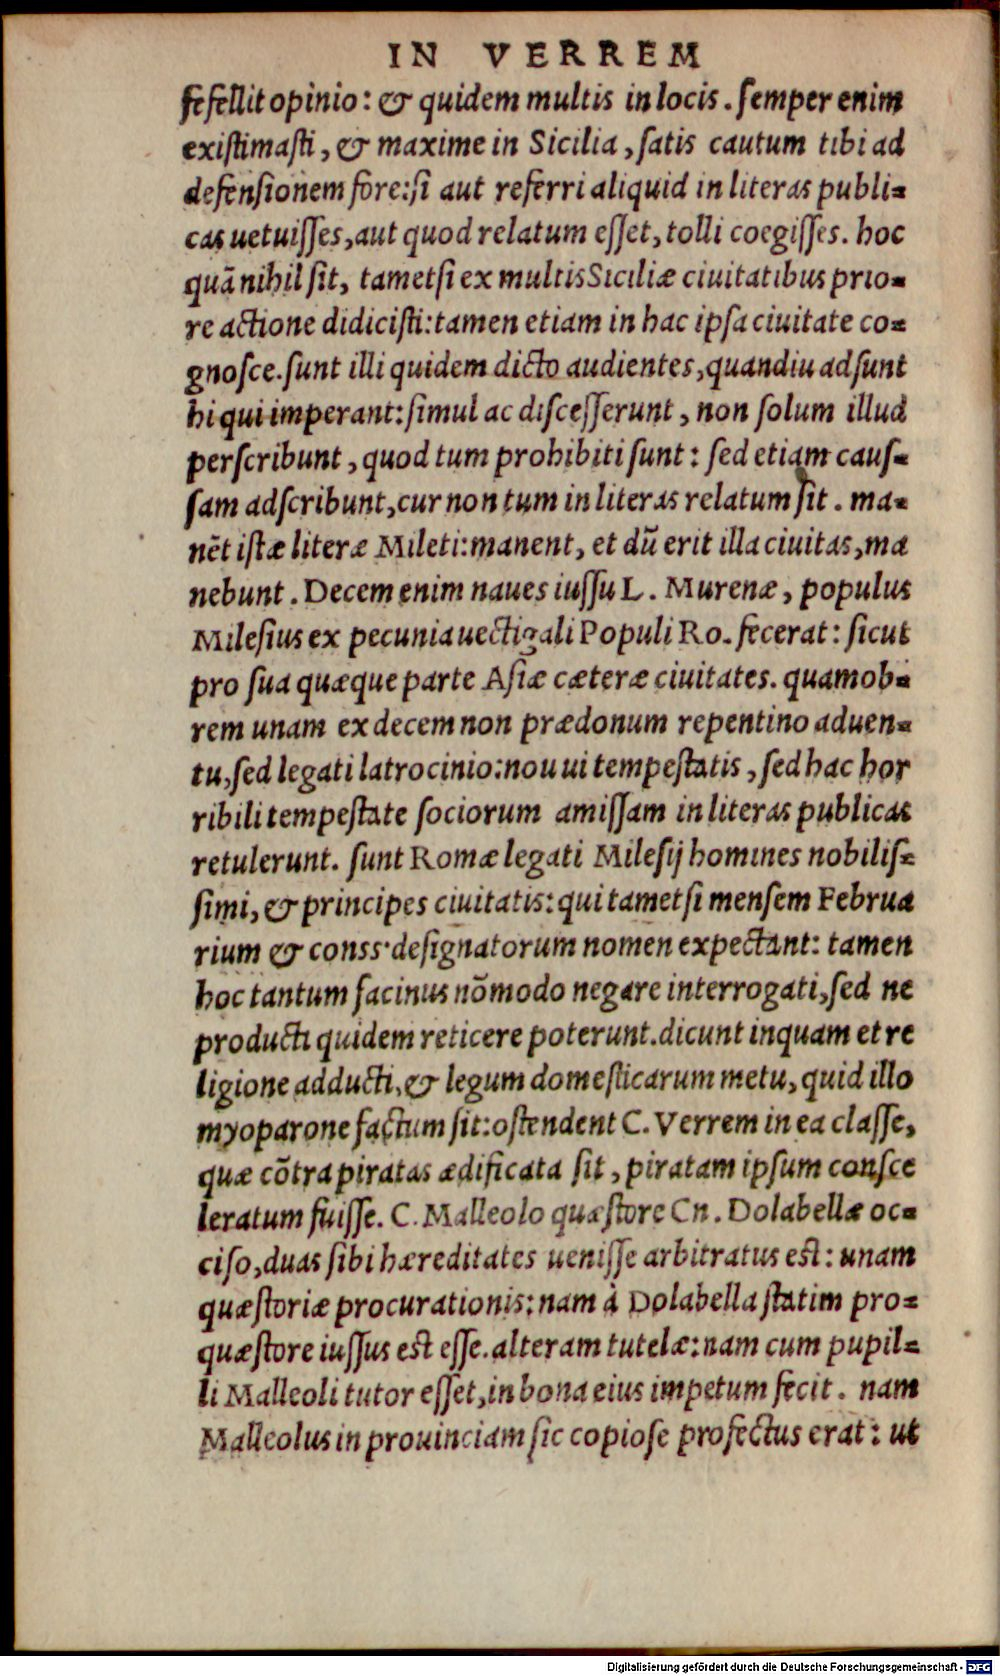 IN VERREM
fefellit opinio: & quidem multis in locis. semper enim
existimasti, & maxime in Sicilia, satis cautum tibi ad
defensionem fore: si aut referri aliquid in literas publi-
cas uetuisses, aut quod relatum esset, tolli coegisses. hoc
quã nihil sit, tametsi ex multis Siciliæ ciuitatibus prio-
re actione didicisti: tamen etiam in hac ipsa ciuitate co-
gnosce. sunt illi quidem dicto audientes, quandiu adsunt
hi qui imperant: simul ac discesserunt, non solum illud
perscribunt, quod tum prohibiti sunt: sed etiam caus-
sam adscribunt, cur non tum in literas relatum sit. ma-
nẽt istæ literæ Mileti: manent, et dũ erit illa ciuitas, ma
nebunt. Decem enim naues iussu L. Murenæ, populus
Milesius ex pecunia uectigali Populi Ro. fecerat: sicut
pro sua quæque parte Asiæ cæteræ ciuitates. quamob-
rem unam ex decem non prædonum repentino aduen-
tu, sed legati latrocinio: nou ui tempestatis, sed hac hor
ribili tempestate sociorum amissam in literas publicas
retulerunt. sunt Romæ legati Milesij homines nobilis-
simi, & principes ciuitatis: qui tametsi mensem Februa
rium & conss. designatorum nomen expectant: tamen
hoc tantum facinus nõmodo negare interrogati, sed ne
producti quidem reticere poterunt. dicunt inquam et re
ligione adducti, & legum domesticarum metu, quid illo
myoparone factum sit: ostendent C. Verrem in ea classe,
quæ cõtra piratas ædificata sit, piratam ipsum consce
leratum fuisse. C. Malleolo quæstore Cn. Dolabellæ oc-
ciso, duas sibi hæreditates uenisse arbitratus est: unam
quæstoriæ procurationis: nam à Dolabella statim pro-
quæstore iussus est esse. alteram tutelæ: nam cum pupil-
li Malleoli tutor esset, in bona eius impetum fecit. nam
Malleolus in prouinciam sic copiose profectus erat: ut
Digitalisierung gefördert durch die Deutsche Forschungsgemeinschaft - DFG